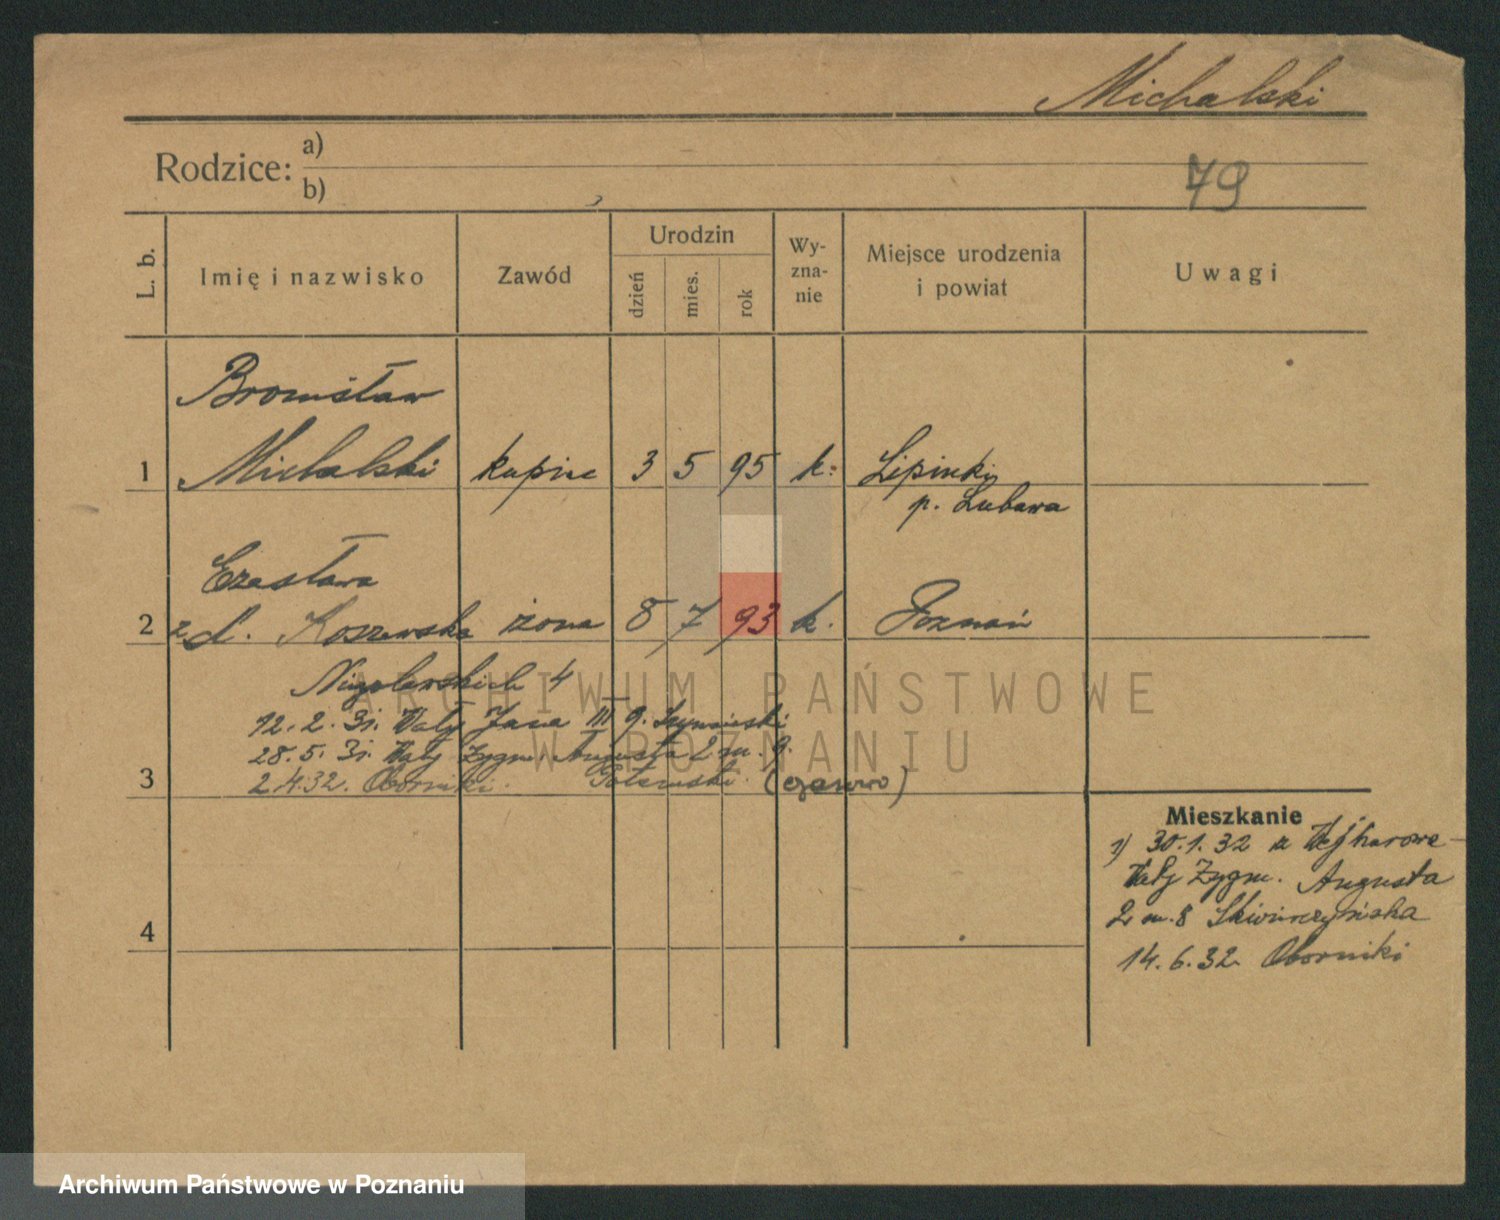 Michalski
Rodzice: a)
b)
79
L. b.
Imię i nazwisko
Zawód
Urodzin
dzień
mies.
rok
Wy-
zna-
nie
Miejsce urodzenia
i powiat
Uwagi
Bronisław
1 Michalski kupiec 3 5 95 k. Lipinki
p. Lubawa
Czesława
2 z d. Koszewska żona 8 7 93 k. Poznań
4
12.2.31. Wały Jana III 9.
28.5.31. Wały Zygm. Augusta 2 m. 9.
3 2.4.32. Oborniki.
Mieszkanie
1) 30.1.32 z
Wały Zygm. Augusta
2 m. 8
14.6.32. Oborniki
4
ARCHIWUM PAŃSTWOWE
W POZNANIU
Archiwum Państwowe w Poznaniu